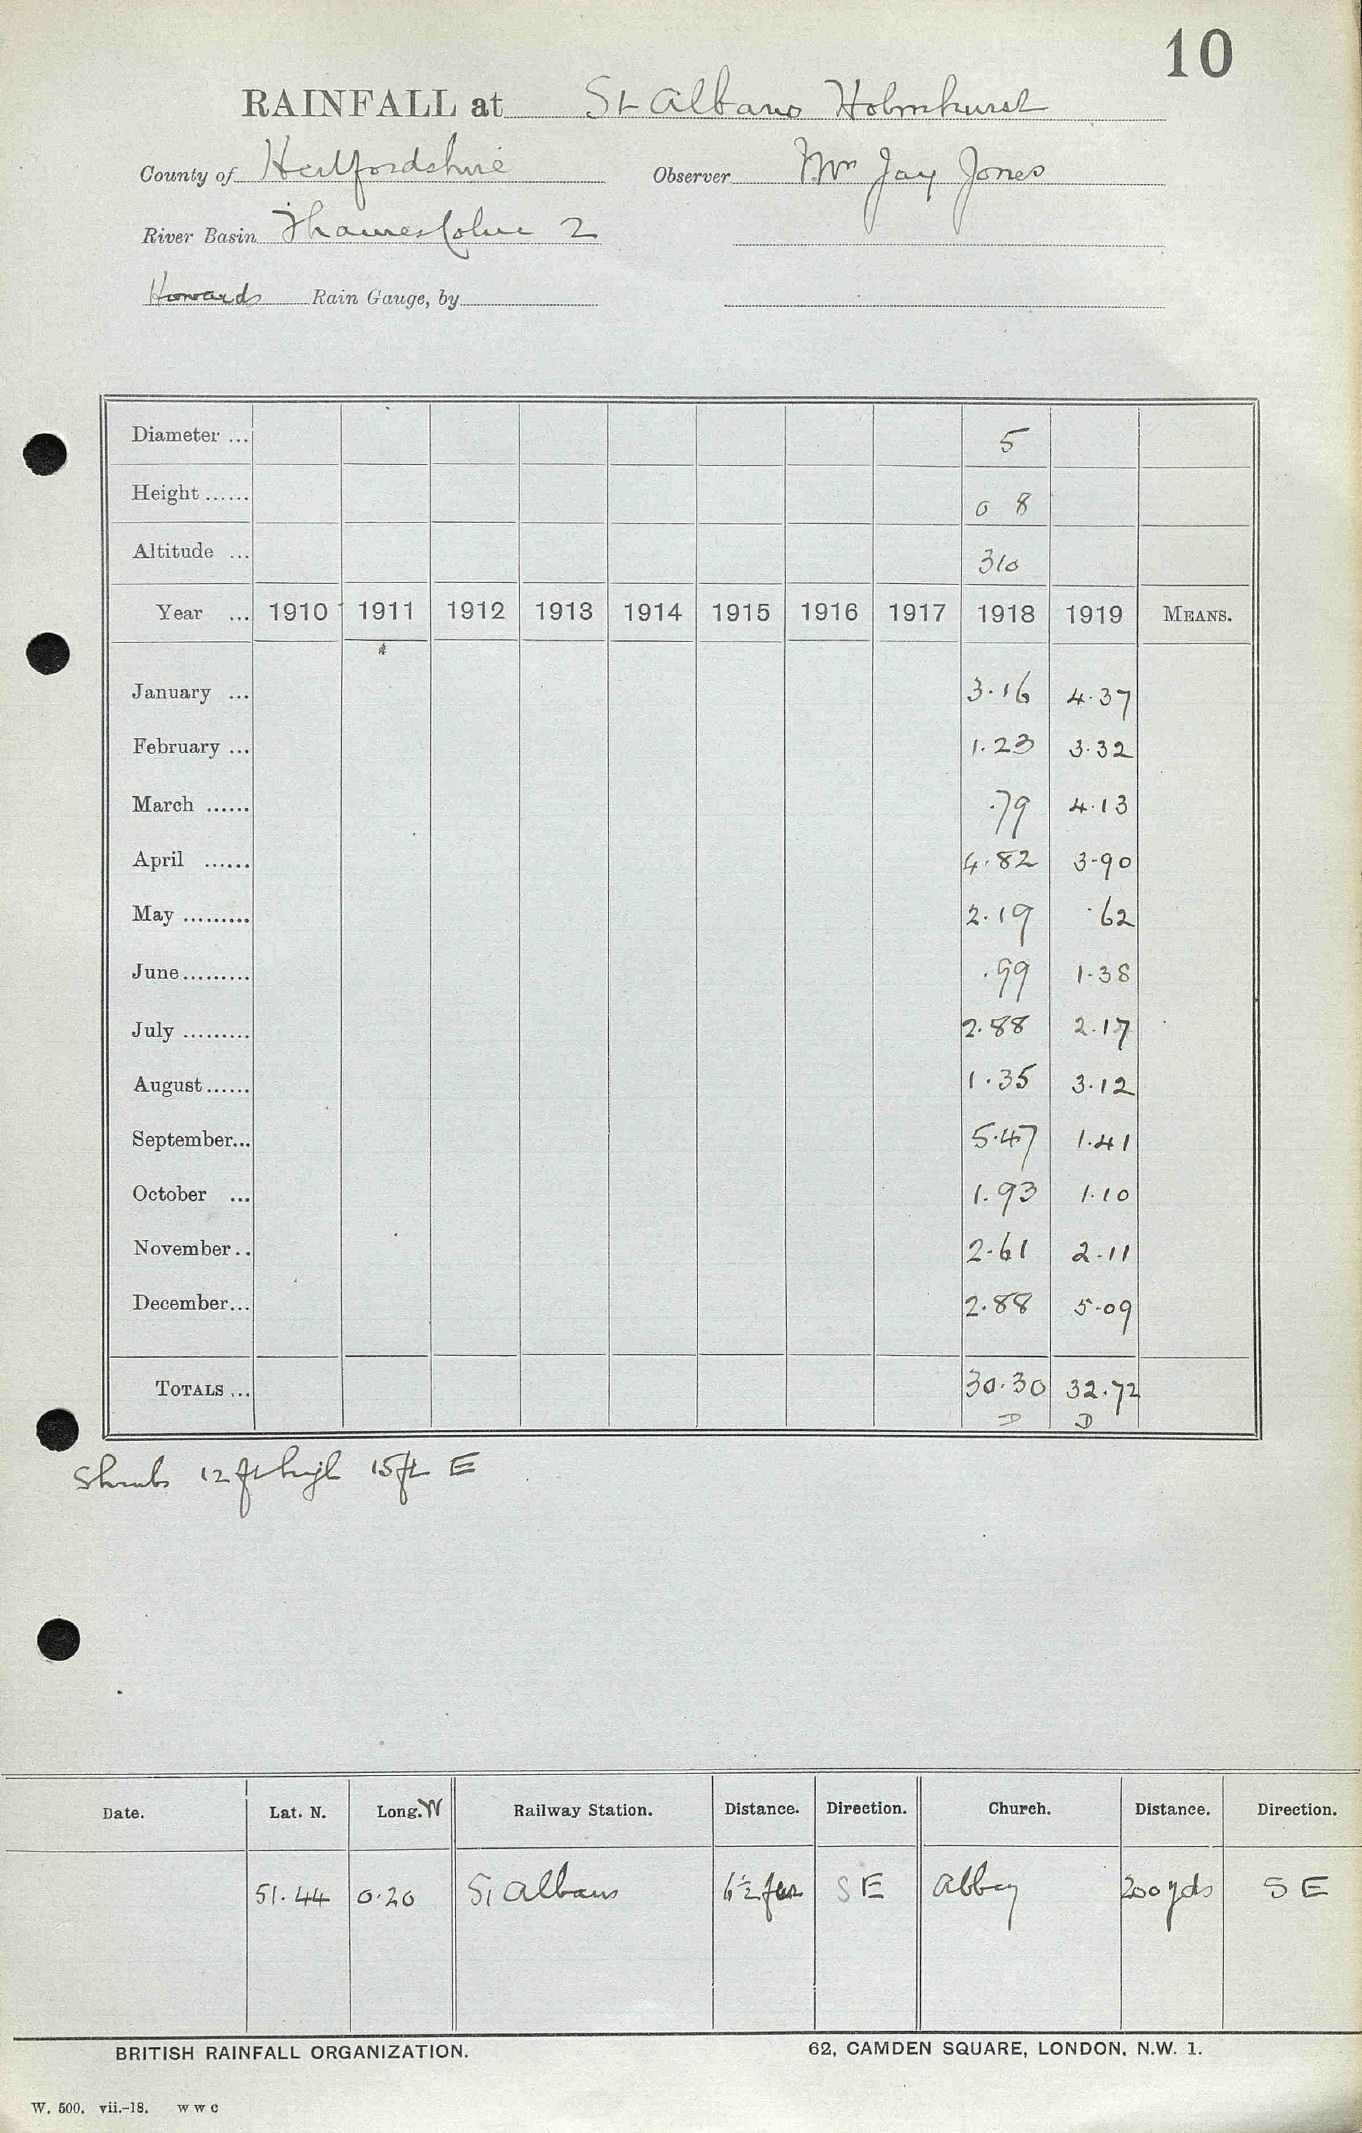 10
RAINFALL at St Albans Holmhurst
County of Hertfordshire Observer Mr Jay Jones
River Basin Thames Colne 2
Howards Rain Gauge, by
Diameter ... 5
Height ...... 0 8
Altitude ... 310
Year ... 1910 1911 1912 1913 1914 1915 1916 1917 1918 1919 MEANS.
January ... 3.16 4.37
February ... 1.23 3.32
March ...... .79 4.13
April ...... 4.82 3.90
May ......... 2.19 .62
June ......... .99 1.38
July ......... 2.88 2.17
August ...... 1.35 3.12
September... 5.47 1.41
October ... 1.93 1.10
November .. 2.61 2.11
December... 2.88 5.09
TOTALS ... 30.30 32.72
D D
Shrubs 12 ft high 15 ft E
Date. Lat. N. Long. W Railway Station. Distance. Direction. Church. Distance. Direction.
51.44 0.20 St Albans 6½ fur S E Abbey 200 yds S E
BRITISH RAINFALL ORGANIZATION. 62, CAMDEN SQUARE, LONDON, N.W. 1.
W. 500. vii.-18. w w c